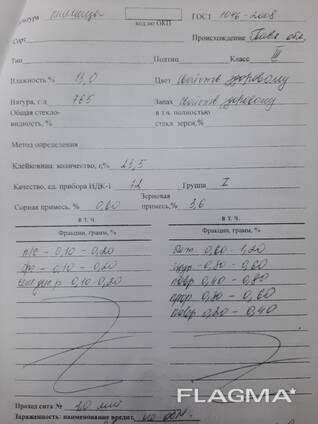 пшеница
код по ОКП
ГОСТ
Сорт
Происхождение
обл.
Тип
Подтип
Класс III
Влажность % 13,0
Цвет свойств. здоровому
Натура, г/л 765
Запах свойств. здоровому
Общая стекло-
в т.ч. полностью
видность, %
стекл. зерен,%
Метод определения
Клейковина: количество, г,% 23,5
Качество, ед. прибора ИДК-1 72
Группа I
Сорная примесь, % 0,60
Зерновая примесь,% 3,6
в т. ч.
в т. ч.
Фракции, граммы, %
Фракции, граммы, %
- 0,10 - 0,20
- 0,60 - 1,20
- 0,10 - 0,20
- 0,30 - 0,60
0,10 - 0,20
- 0,40 - 0,80
- 0,30 - 0,60
- 0,20 - 0,40
Проход сита №
20
Зараженность: наименование вредит.
не обн.
FLAGMA